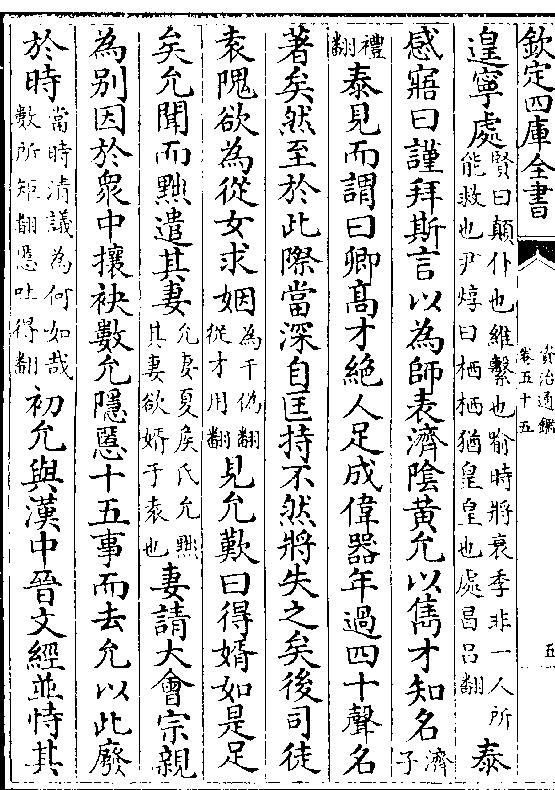 欽定四庫全書
資治通鑑
卷五十五
五
遑寧處賢曰顛仆也維繫也喻時將衰季非一人所能救也尹焞曰栖栖猶皇皇也處昌呂翻泰
感寤曰謹拜斯言以為師表濟隂黃允以雋才知名濟子
禮翻泰見而謂曰卿髙才絶人足成偉器年過四十聲名
著矣然至於此際當深自匡持不然將失之矣後司徒
袁隗欲為從女求姻為于偽翻從才用翻見允歎曰得婿如是足
矣允聞而黜遣其妻允妻夏侯氏允黜其妻欲婿于袁也妻請大會宗親
為别因於衆中攘袂數允隱慝十五事而去允以此廢
於時當時清議為何如哉數所矩翻慝吐得翻初允與漢中晉文經並恃其